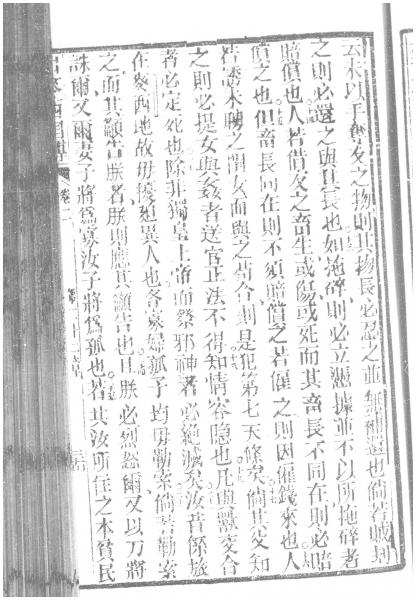 云未以手奪友之物則其物長必忍之並無補還也倘若賊刦
之則必還之與其長也如拖碎則必立憑據並不以所拖碎者
賠償也人若借友之畜生或傷或死而其畜長不同在則必賠
償之也但畜長同在則不須賠償之若僱之則因僱錢來也人
若誘未聘之閨女而與之苟合則是犯第七天條矣倘其父知
之則必捉女與姦者送官正法不得知情容隱也凡與獸交合
者必定死也除非獨皇上帝而祭邪神者必絕滅矣汝昔係旅
在麥西地故毋擾廹異人也各寡婦孤子均毋勒索倘若勒索
之而其籲告朕者朕則應其籲告也且朕必烈怒爾又以刀將
誅爾又爾妻子將爲寡汝子將爲孤也若其汝所住之本貧民
出麥西國傳 卷二